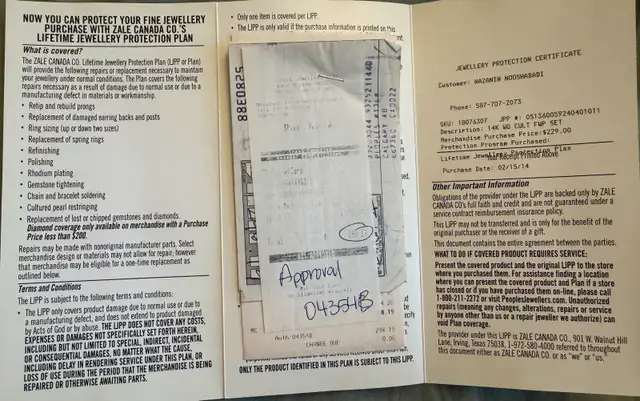 NOW YOU CAN PROTECT YOUR FINE JEWELLERY
PURCHASE WITH ZALE CANADA CO.'S
LIFETIME JEWELLERY PROTECTION PLAN
What is covered?
The ZALE CANADA CO. Lifetime Jewellery Protection Plan (LJPP or Plan)
will provide the following repairs or replacement necessary to maintain
your jewellery under normal conditions. The Plan covers the following
repairs necessary as a result of damage due to normal use or due to a
manufacturing defect in materials or workmanship.
• Retip and rebuild prongs
• Replacement of damaged earring backs and posts
• Ring sizing (up or down two sizes)
• Replacement of spring rings
• Refinishing
• Polishing
• Rhodium plating
• Gemstone tightening
• Chain and bracelet soldering
• Cultured pearl restringing
• Replacement of lost or chipped gemstones and diamonds.
Diamond coverage only available on merchandise with a Purchase
Price less than $200.
Repairs may be made with nonoriginal manufacturer parts. Select
merchandise design or materials may not allow for repair; however
that merchandise may be eligible for a one-time replacement as
outlined below.
Terms and Conditions
The LJPP is subject to the following terms and conditions:
• The LJPP only covers product damage due to normal use or due to
a manufacturing defect, and does not extend to product damaged
by Acts of God or by abuse. THE LJPP DOES NOT COVER ANY COSTS,
EXPENSES OR DAMAGES NOT SPECIFICALLY SET FORTH HEREIN,
INCLUDING BUT NOT LIMITED TO SPECIAL, INDIRECT, INCIDENTAL
OR CONSEQUENTIAL DAMAGES. NO MATTER WHAT THE CAUSE,
INCLUDING DELAY IN RENDERING SERVICE UNDER THIS PLAN, OR
LOSS OF USE DURING THE PERIOD THAT THE MERCHANDISE IS BEING
REPAIRED OR OTHERWISE AWAITING PARTS.
• Only one item is covered per LJPP.
• The LJPP is only valid if the purchase information is printed on this
Approval
043548
4.20
8.19
Auth:043548
CHANGE DUE
0.00
ONLY THE PRODUCT IDENTIFIED IN THIS PLAN IS SUBJECT TO THIS LJPP.
JEWELLERY PROTECTION CERTIFICATE
Customer: NAZANIN NOOSHABADI
Phone: 587-707-2073
SKU: 18076307 JPP #: 0513600592404010​11
Description: 14K WG CULT FWP SET
Merchandise Purchase Price:$229.00
Protection Program Purchased:
Lifetime Jewellery Protection Plan
Your Receipt Printed Above
Purchase Date: 02/15/14
Other Important Information
Obligations of the provider under the LJPP are backed only by ZALE
CANADA CO.'s full faith and credit and are not guaranteed under a
service contract reimbursement insurance policy.
This LJPP may not be transferred and is only for the benefit of the
original purchaser or the receiver of a gift.
This document contains the entire agreement between the parties.
WHAT TO DO IF COVERED PRODUCT REQUIRES SERVICE:
Present the covered product and the original LJPP to the store
where you purchased them. For assistance finding a location
where you can present the covered product and Plan if a store
has closed or if you have purchased them on-line, please call
1-800-211-2272 or visit PeoplesJewellers.com. Unauthorized
repairs (meaning any changes, alterations, repairs or service
by anyone other than us or a repair jeweller we authorize) can
void Plan coverage.
The provider under this LJPP is ZALE CANADA CO., 901 W. Walnut Hill
Lane, Irving, Texas 75038, 1-972-580-4000 referred to throughout
this document either as ZALE CANADA CO. or as "we" or "us."